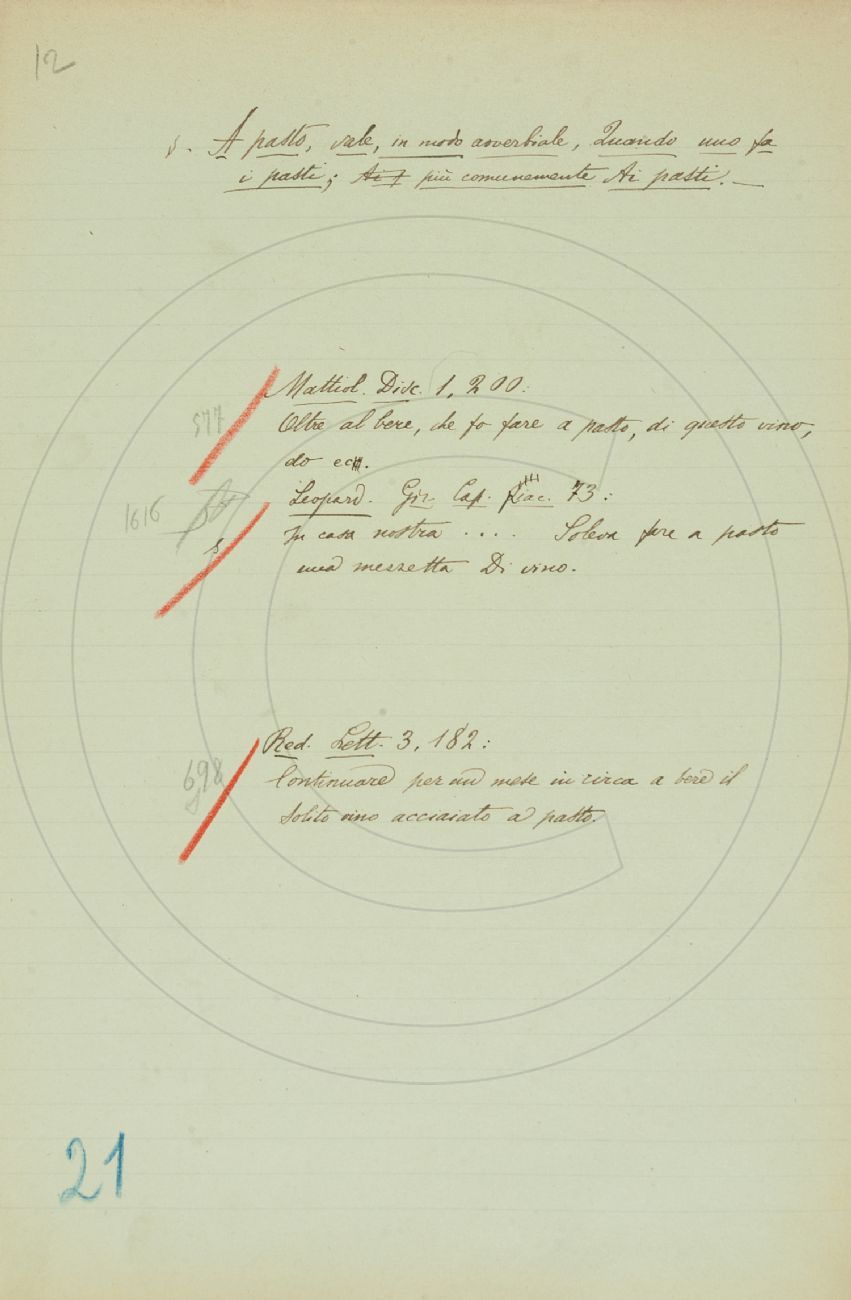 12
§. A pasto, vale, in modo avverbiale, Quando uno fa
i pasti; più comunemente Ai pasti. —
Mattiol. Disc. 1, 200:
577
Oltre al bere, che fo fare a pasto, di questo vino,
do ec.
Leopard. Gir. Cap. Piac. 73:
1616
In casa nostra .... Soleva fare a pasto
una mezzetta Di vino.
Red. Lett. 3, 182:
698
Continuare per un mese in circa a bere il
solito vino acciaiato a pasto.
21